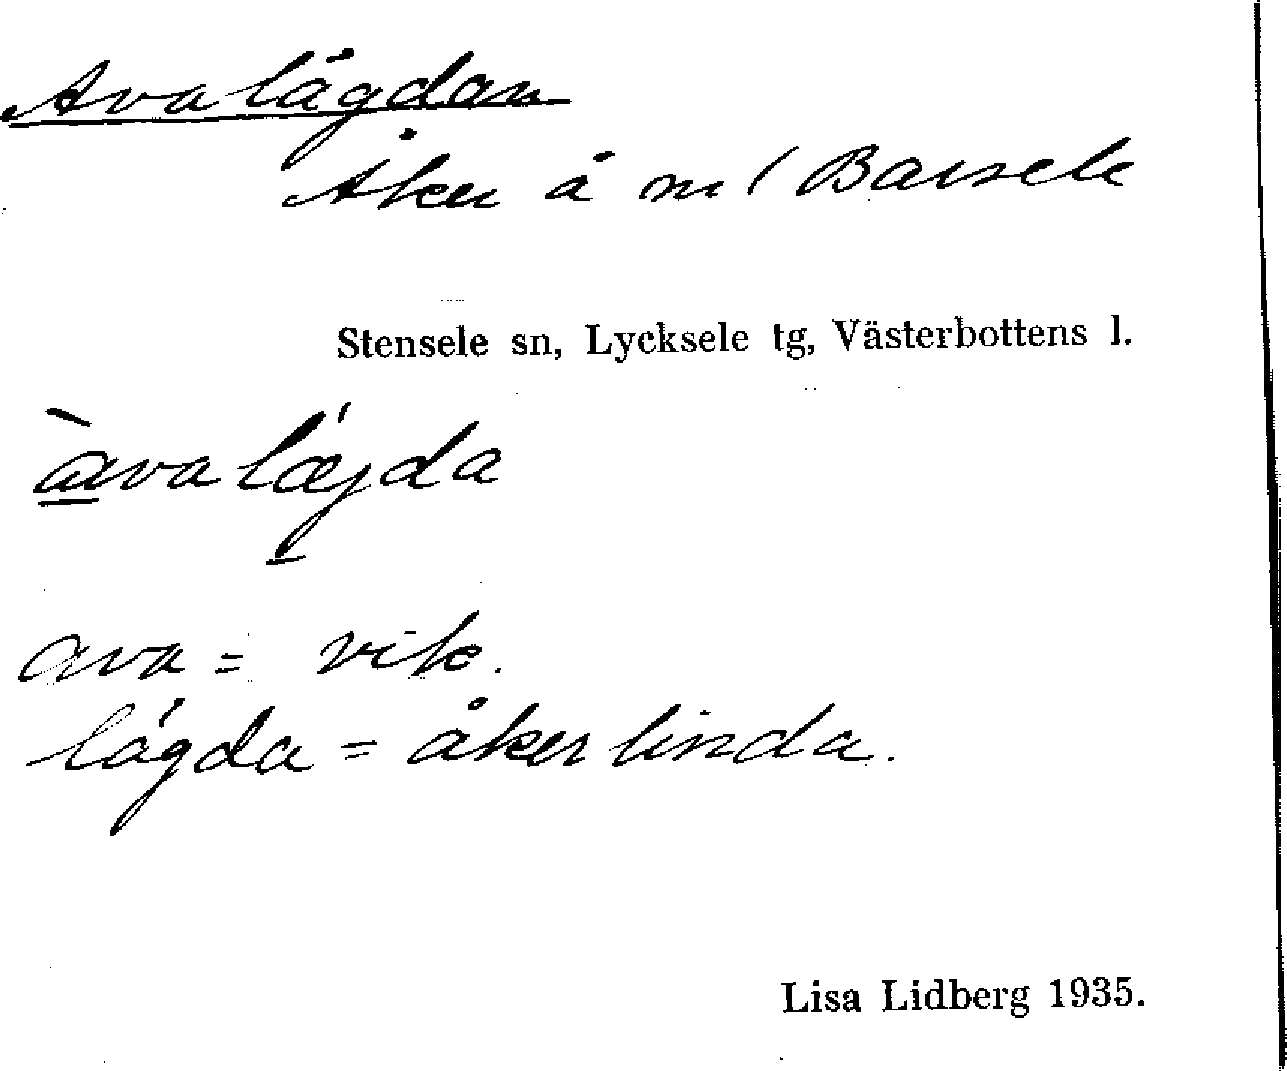 Avalägdan
Åker å nr 1 Barsele
Stensele sn, Lycksele tg, Västerbottens l.
àvalæjda
ava = vik.
lägda = åkerlinda.
Lisa Lidberg 1935.